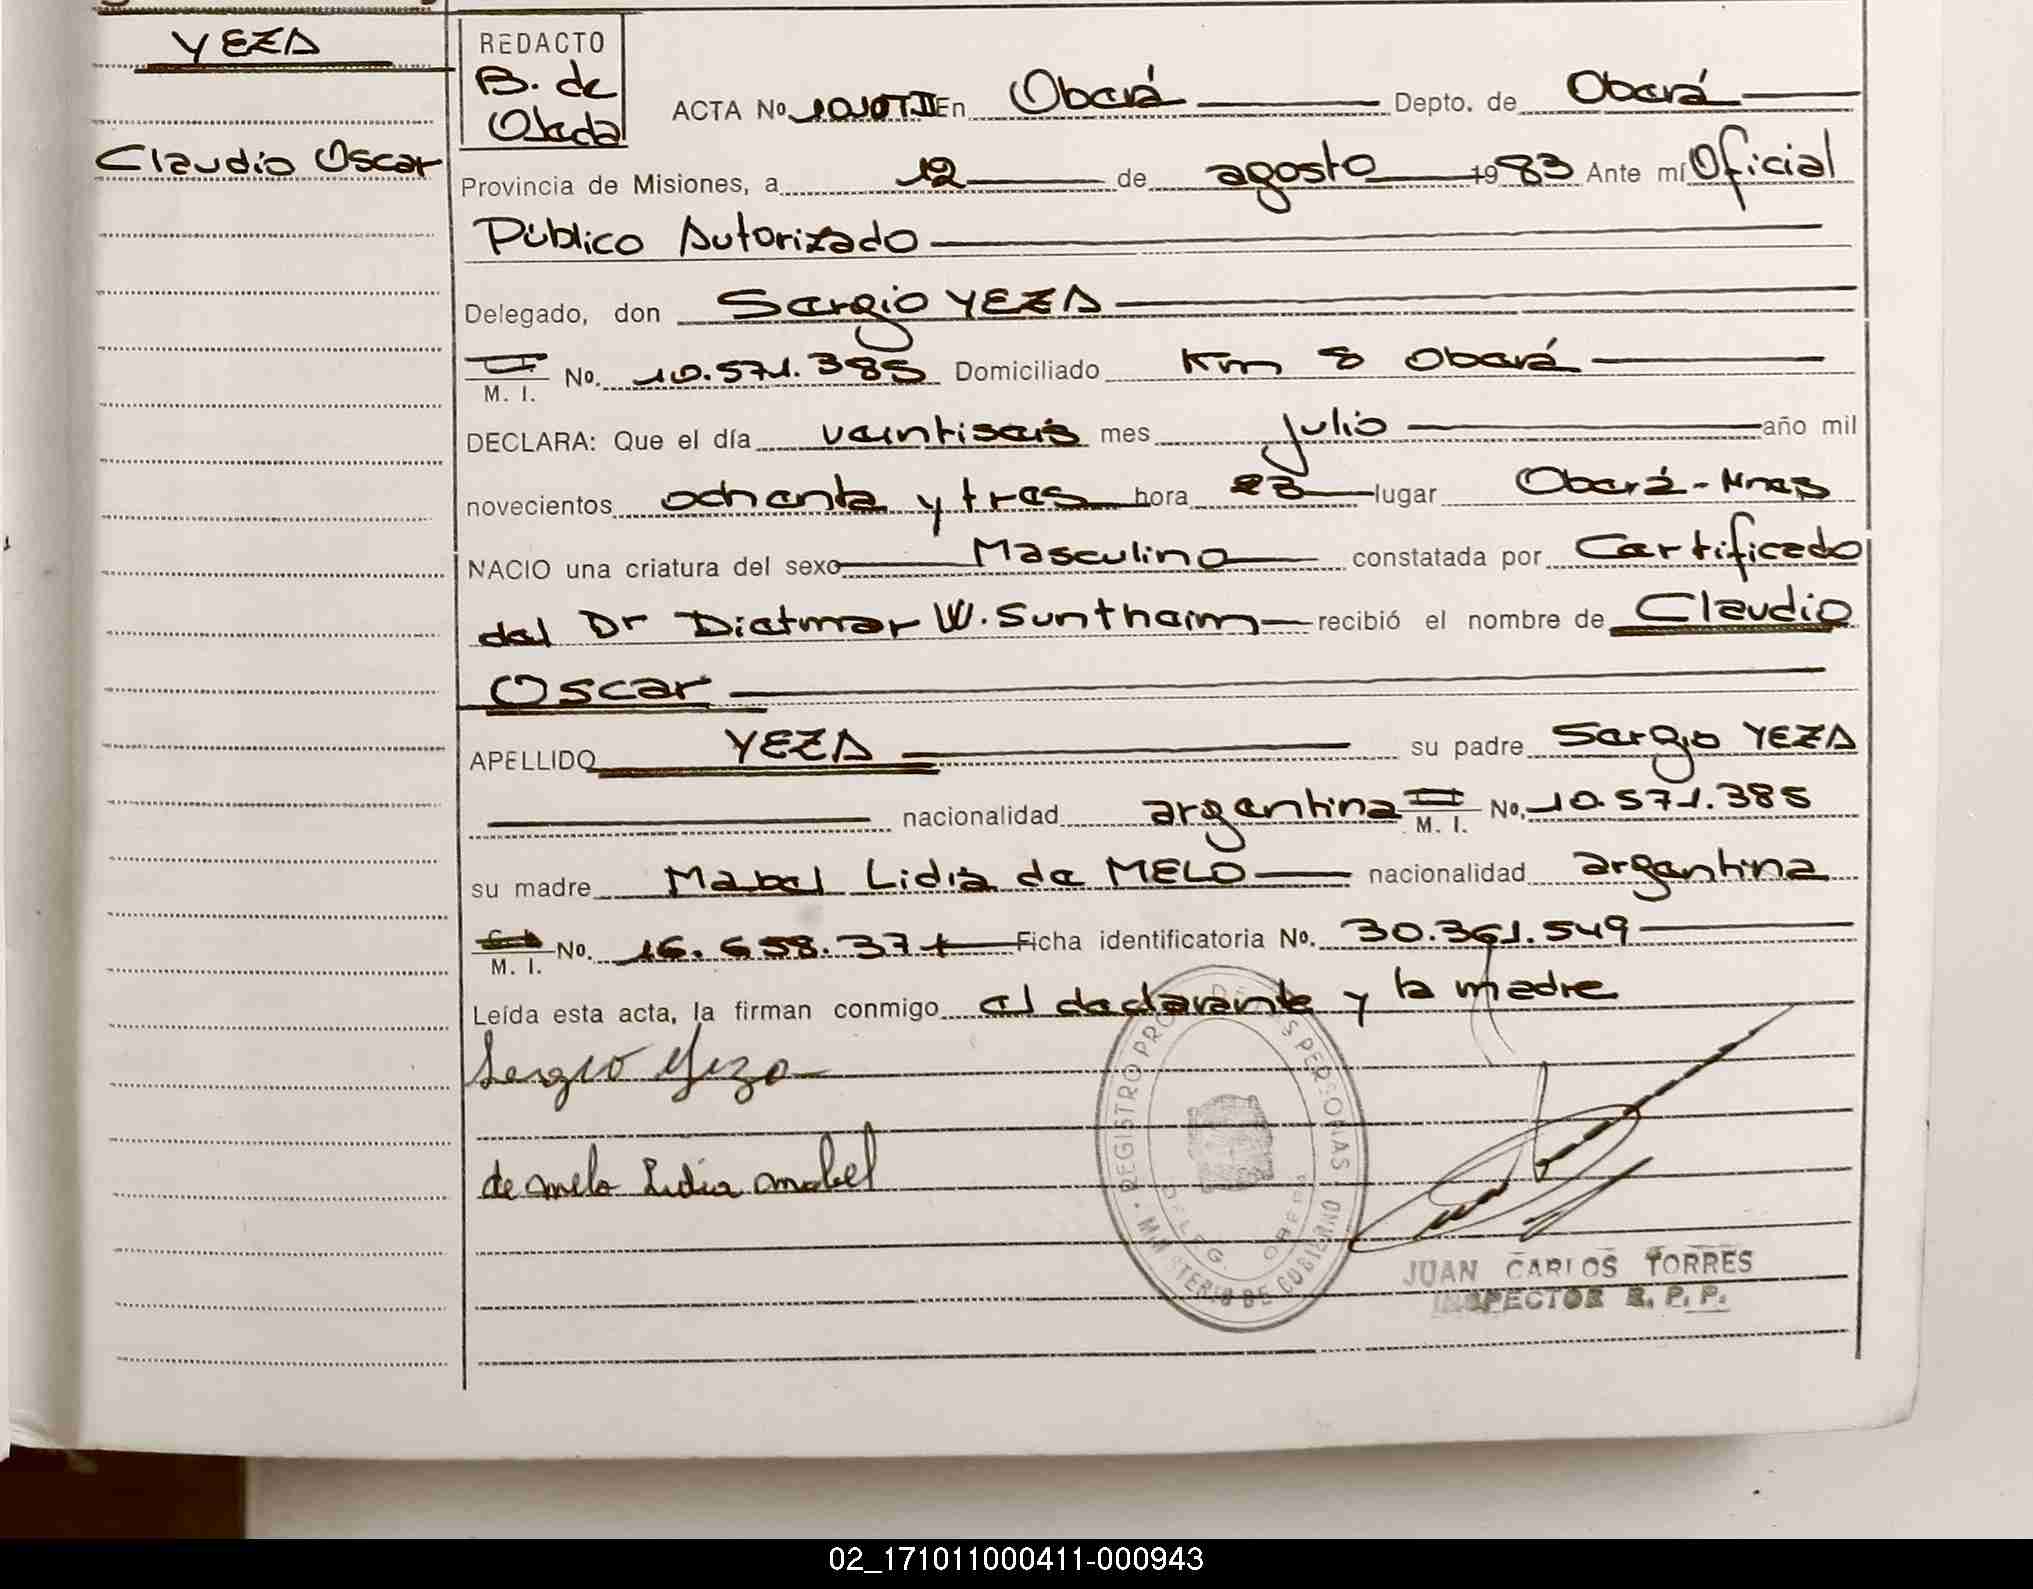 YEZA
Claudio Oscar
REDACTO
B. de
Ojeda
ACTA No 1010TII En Oberá Depto. de Oberá
Provincia de Misiones, a 12 de agosto 1983 Ante mí Oficial
Público Autorizado
Delegado, don Sergio YEZA
M. I. No. 10.571.385 Domiciliado Km 8 Oberá
DECLARA: Que el día veintiseis mes julio año mil
novecientos ochenta y tres hora 23 lugar Oberá-Mnes
NACIO una criatura del sexo Masculino constatada por Certificado
del Dr Dietmar W. Suntheim recibió el nombre de Claudio
Oscar
APELLIDO YEZA su padre Sergio YEZA
nacionalidad argentina M. I. No. 10.571.385
su madre Mabel Lidia de MELO nacionalidad argentina
M. I. No. 16.658.371 Ficha identificatoria No. 30.361.549
Leída esta acta, la firman conmigo el declarante y la madre
Sergio Yeza
de melo Lidia mabel
REGISTRO PROV. DE LAS PERSONAS
MINISTERIO DE GOBIERNO
DELEG. OBERA
JUAN CARLOS TORRES
INSPECTOR R. P. P.
02_171011000411-000943